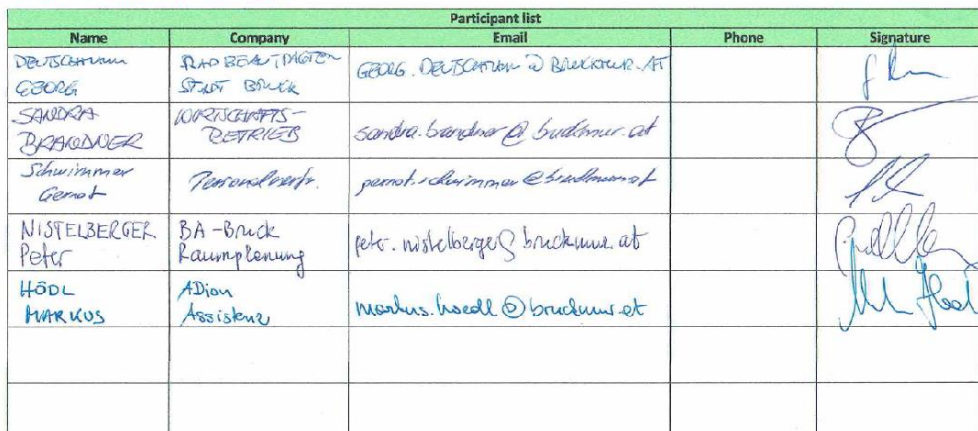 Participant list
Name Company Email Phone Signature
DEUTSCHMANN RADBEAUFTRAGTER
GEORG STADT BRUCK GEORG.DEUTSCHMANN@BRUCKMUR.AT
SANDRA WIRTSCHAFTS-
BRANDNER BETRIEB sandra.brandner@bruckmur.at
Schwimmer
Gernot Personalvertr. gernot.schwimmer@bruckmur.at
NISTELBERGER BA-Bruck
Peter Raumplanung peter.nistelberger@bruckmur.at
HÖDL ADion
MARKUS Assistenz markus.hoedl@bruckmur.at